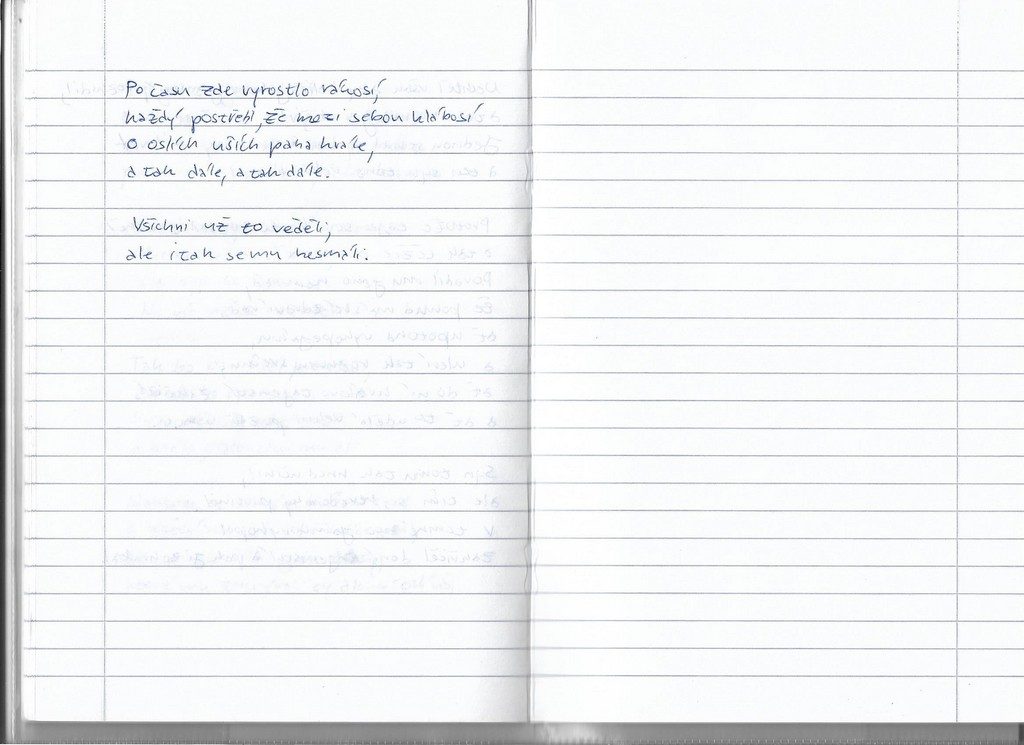 Po času zde vyrostlo rákosí,
každý postřehl, že mezi sebou klábosí
o oslích uších pana krále,
a tak dále, a tak dále.
Všichni už to věděli,
ale i tak se mu nesmáli.